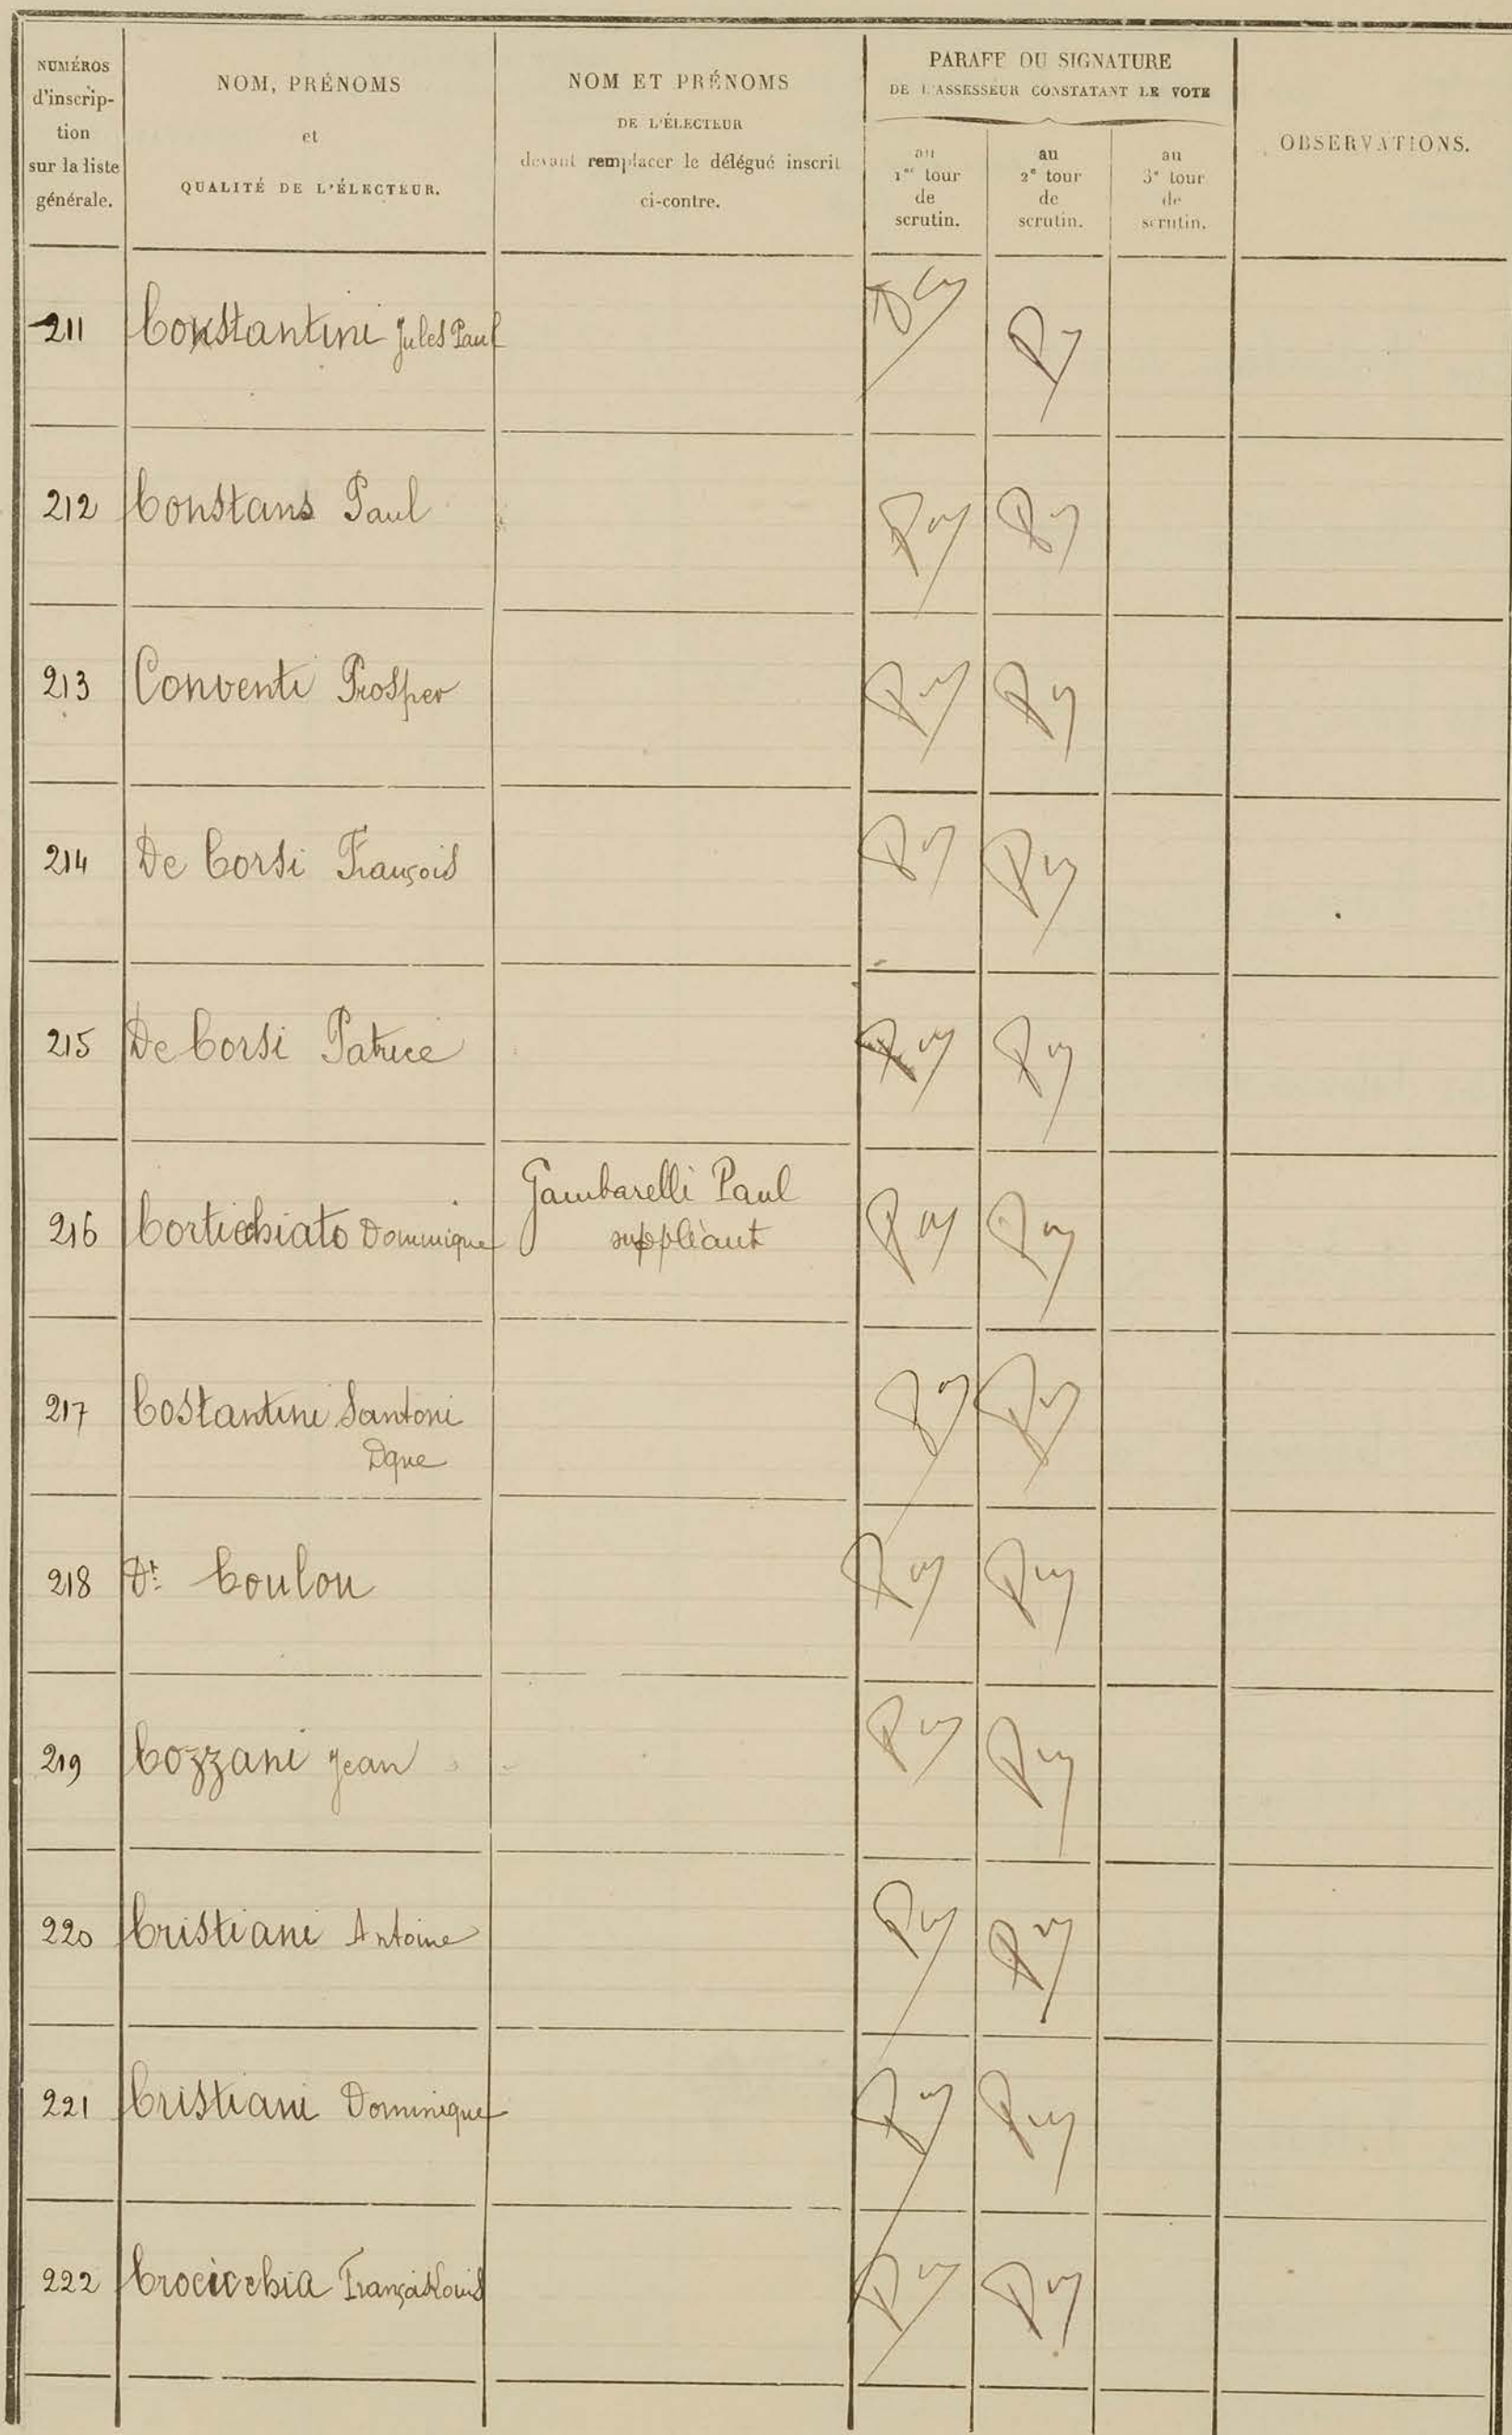 NUMÉROS
d'inscrip-
tion
sur la liste
générale.
NOM, PRÉNOMS
et
QUALITÉ DE L'ÉLECTEUR.
NOM ET PRÉNOMS
DE L'ÉLECTEUR
devant remplacer le délégué inscrit
ci-contre.
PARAFE OU SIGNATURE
DE L'ASSESSEUR CONSTATANT LE VOTE
au
1er tour
de
scrutin.
au
2e tour
de
scrutin.
au
3e tour
de
scrutin.
OBSERVATIONS.
211 Constantini Jules Paul
212 Constans Paul
213 Conventi Prosper
214 De Corsi François
215 De Corsi Patrice
216 Cortichiato Dominique
Gambarelli Paul
suppléant
217 Costantini Santoni
Dque
218 Dr Coulon
219 Cozzani Jean
220 Cristiani Antoine
221 Cristiani Dominique
222 Crocicchia François Louis